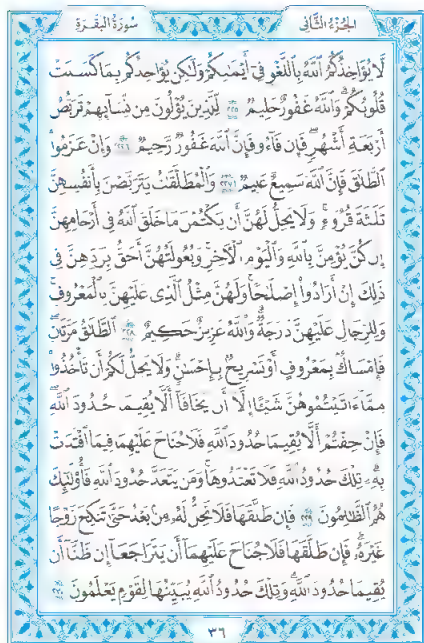 الجزء الثاني
سورة البقرة
لَّا يُؤَاخِذُكُمُ ٱللَّهُ بِٱللَّغْوِ فِىٓ أَيْمَـٰنِكُمْ وَلَـٰكِن يُؤَاخِذُكُم بِمَا كَسَبَتْ
قُلُوبُكُمْ ۗ وَٱللَّهُ غَفُورٌ حَلِيمٌ ٢٢٥ لِّلَّذِينَ يُؤْلُونَ مِن نِّسَآئِهِمْ تَرَبُّصُ
أَرْبَعَةِ أَشْهُرٍ ۖ فَإِن فَآءُو فَإِنَّ ٱللَّهَ غَفُورٌ رَّحِيمٌ ٢٢٦ وَإِنْ عَزَمُوا۟
ٱلطَّلَـٰقَ فَإِنَّ ٱللَّهَ سَمِيعٌ عَلِيمٌ ٢٢٧ وَٱلْمُطَلَّقَـٰتُ يَتَرَبَّصْنَ بِأَنفُسِهِنَّ
ثَلَـٰثَةَ قُرُوٓءٍ ۚ وَلَا يَحِلُّ لَهُنَّ أَن يَكْتُمْنَ مَا خَلَقَ ٱللَّهُ فِىٓ أَرْحَامِهِنَّ
إِن كُنَّ يُؤْمِنَّ بِٱللَّهِ وَٱلْيَوْمِ ٱلْـَٔاخِرِ ۚ وَبُعُولَتُهُنَّ أَحَقُّ بِرَدِّهِنَّ فِى
ذَٰلِكَ إِنْ أَرَادُوٓا۟ إِصْلَـٰحًا ۚ وَلَهُنَّ مِثْلُ ٱلَّذِى عَلَيْهِنَّ بِٱلْمَعْرُوفِ ۚ
وَلِلرِّجَالِ عَلَيْهِنَّ دَرَجَةٌ ۗ وَٱللَّهُ عَزِيزٌ حَكِيمٌ ٢٢٨ ٱلطَّلَـٰقُ مَرَّتَانِ ۖ
فَإِمْسَاكٌۢ بِمَعْرُوفٍ أَوْ تَسْرِيحٌۢ بِإِحْسَـٰنٍ ۗ وَلَا يَحِلُّ لَكُمْ أَن تَأْخُذُوا۟
مِمَّآ ءَاتَيْتُمُوهُنَّ شَيْـًٔا إِلَّآ أَن يَخَافَآ أَلَّا يُقِيمَا حُدُودَ ٱللَّهِ ۖ
فَإِنْ خِفْتُمْ أَلَّا يُقِيمَا حُدُودَ ٱللَّهِ فَلَا جُنَاحَ عَلَيْهِمَا فِيمَا ٱفْتَدَتْ
بِهِۦ ۗ تِلْكَ حُدُودُ ٱللَّهِ فَلَا تَعْتَدُوهَا ۚ وَمَن يَتَعَدَّ حُدُودَ ٱللَّهِ فَأُو۟لَـٰٓئِكَ
هُمُ ٱلظَّـٰلِمُونَ ٢٢٩ فَإِن طَلَّقَهَا فَلَا تَحِلُّ لَهُۥ مِنۢ بَعْدُ حَتَّىٰ تَنكِحَ زَوْجًا
غَيْرَهُۥ ۗ فَإِن طَلَّقَهَا فَلَا جُنَاحَ عَلَيْهِمَآ أَن يَتَرَاجَعَآ إِن ظَنَّآ أَن
يُقِيمَا حُدُودَ ٱللَّهِ ۗ وَتِلْكَ حُدُودُ ٱللَّهِ يُبَيِّنُهَا لِقَوْمٍ يَعْلَمُونَ ٢٣٠
٣٦